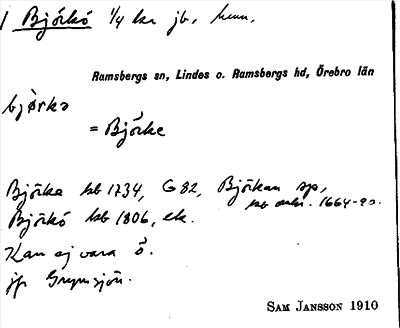 1 Björkö 1/4 kr jb, hmn.
Ramsbergs sn, Lindes o. Ramsbergs hd, Örebro län
bjὸrkə
= Björke
Björke kb 1734, G 82, Björkan sp,
kb 1664-90.
Björkö kb 1806, ek.
Kan ej vara ö.
jfr Grymsjön.
SAM JANSSON 1910